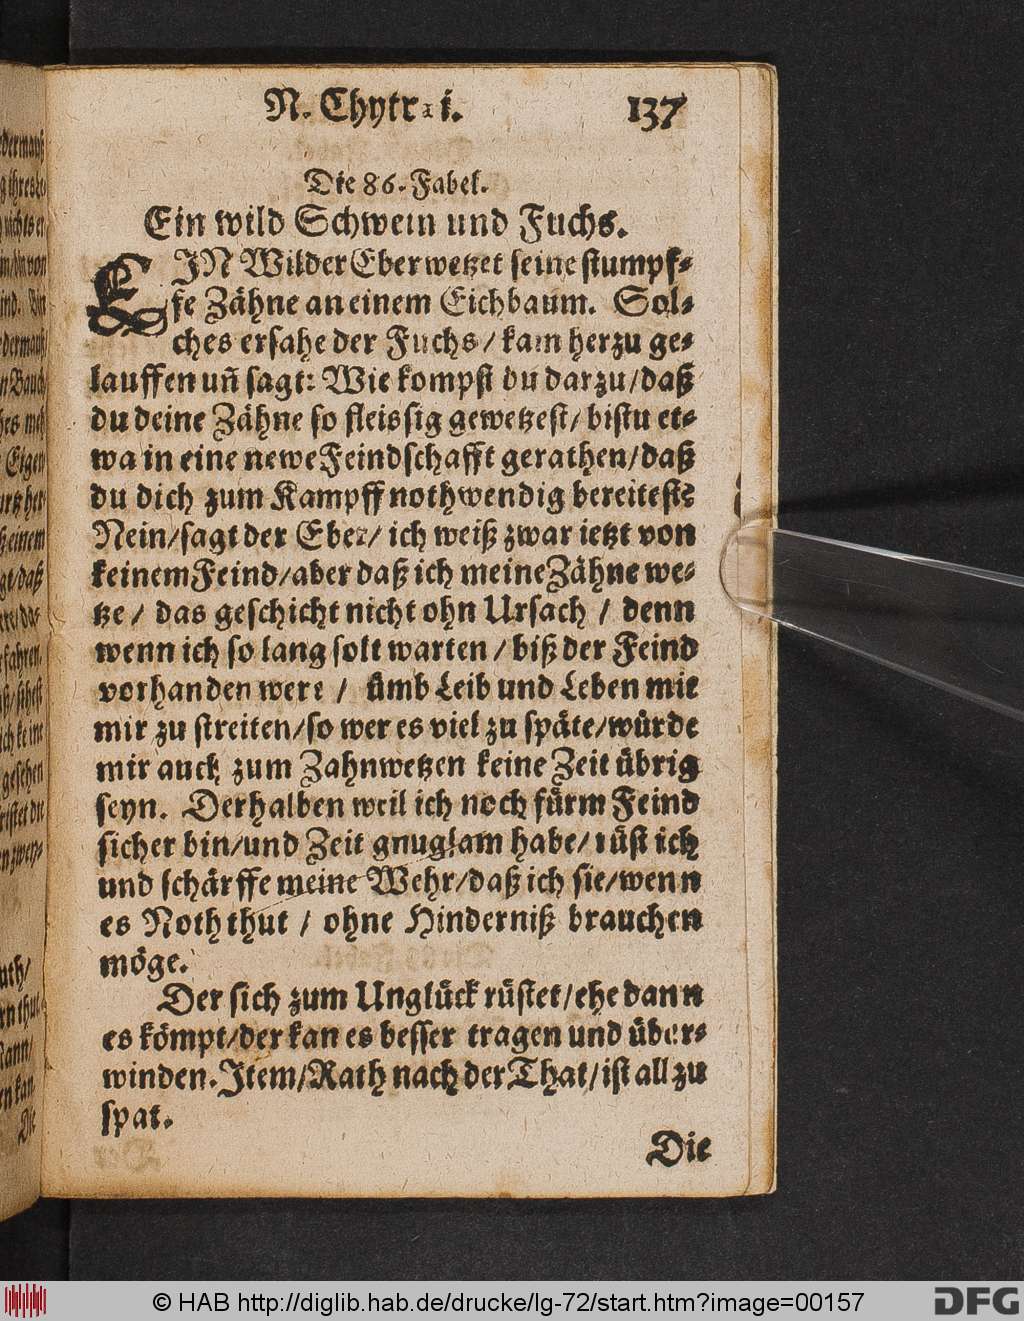 N. Chytræi. 137
Die 86. Fabel.
Ein wild Schwein und Fuchs.
EIN Wilder Eber wetzet seine stumpf-
fe Zähne an einem Eichbaum. Sol-
ches ersahe der Fuchs / kam herzu ge-
lauffen uñ sagt: Wie kompst du darzu / daß
du deine Zähne so fleissig gewetzest / bistu et-
wa in eine newe Feindschafft gerathen / daß
du dich zum Kampff nothwendig bereitest?
Nein / sagt der Eber / ich weiß zwar ietzt von
keinem Feind / aber daß ich meine Zähne we-
tze / das geschicht nicht ohn Ursach / denn
wenn ich so lang solt warten / biß der Feind
vorhanden were / ümb Leib und Leben mit
mir zu streiten / so wer es viel zu späte / würde
mir auch zum Zahnwetzen keine Zeit übrig
seyn. Derhalben weil ich noch fürm Feind
sicher bin / und Zeit gnugsam habe / rüst ich
und schärffe meine Wehr / daß ich sie / wenn
es Noth thut / ohne Hinderniß brauchen
möge.
Der sich zum Unglück rüstet / ehe dann
es kömpt / der kan es besser tragen und über-
winden. Item / Rath nach der That / ist all zu
spat.
Die
© HAB http://diglib.hab.de/drucke/lg-72/start.htm?image=00157
DFG